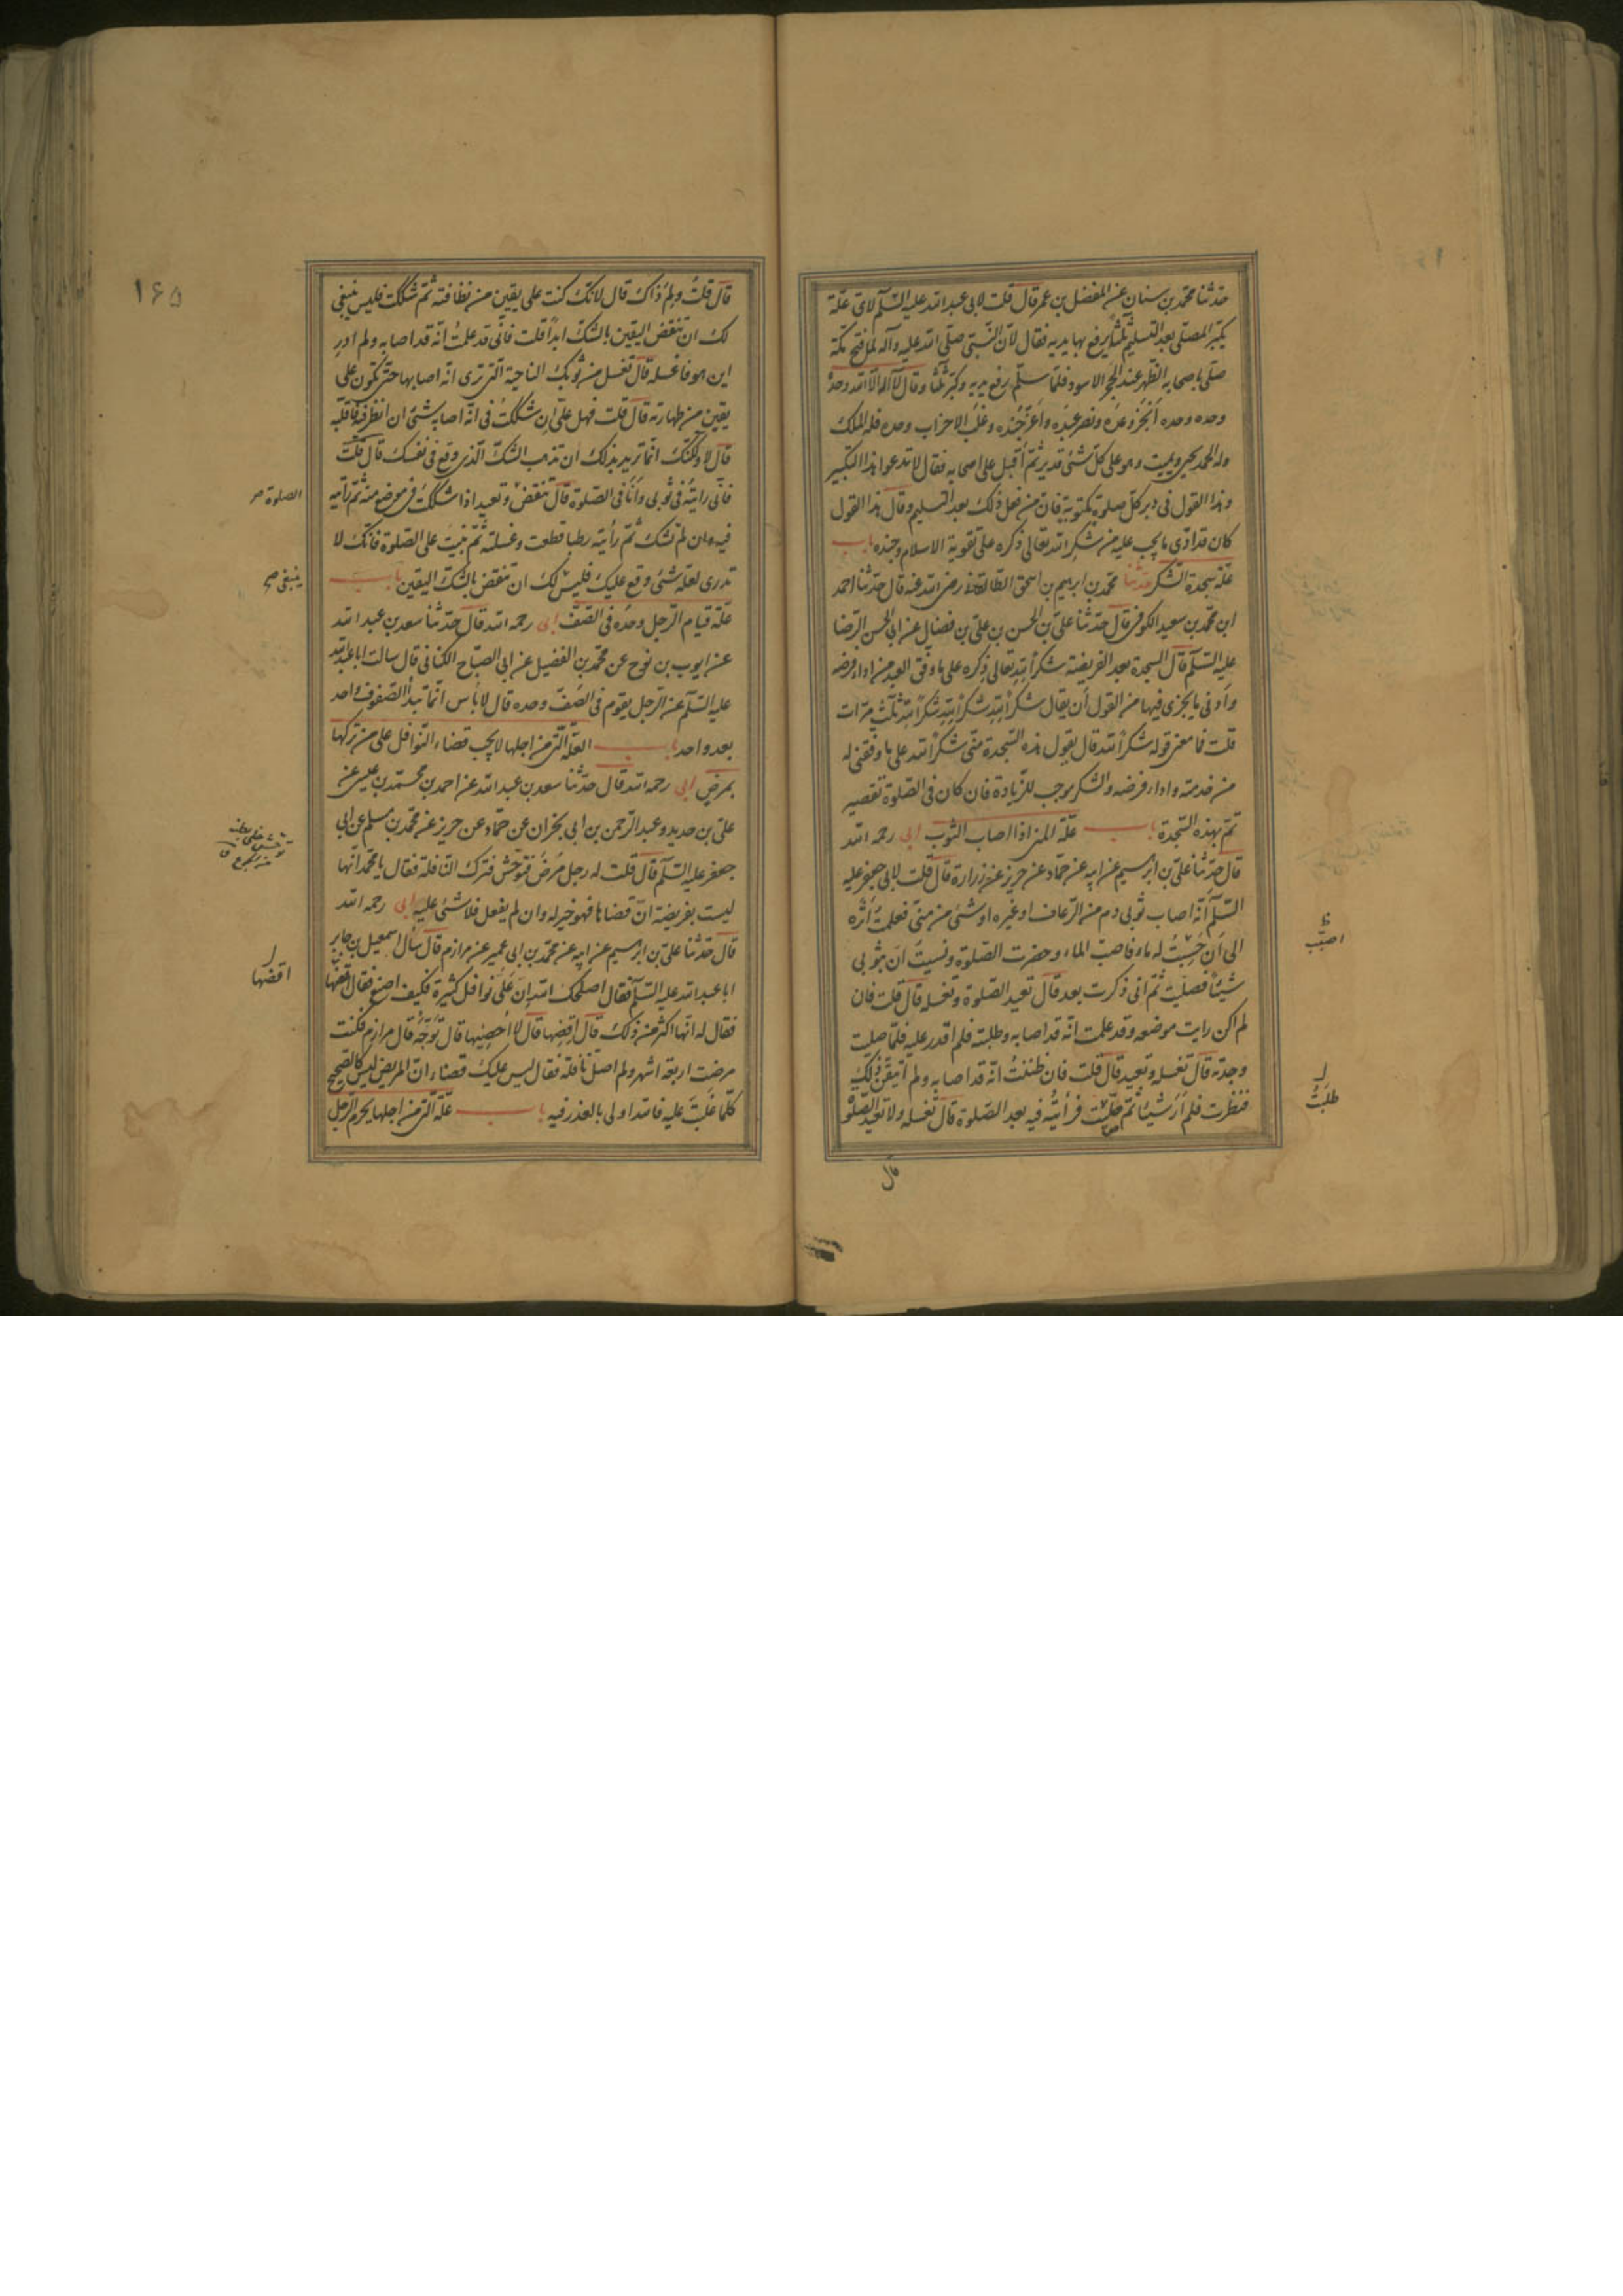 حدثنا محمد بن سنان عن المفضل بن عمر قال قلت لابی عبد الله علیه السلام لای علة
یکبر المصلی بعد التسلیم ثلثا یرفع بها یدیه فقال لان النبی صلی الله علیه وآله لما فتح مکة
صلی باصحابه الظهر عند الحجر الاسود فلما سلم رفع یدیه وکبر ثلثا وقال لا اله الا الله وحده
وحده وحده انجز وعده ونصر عبده واعز جنده وغلب الاحزاب وحده فله الملک
وله الحمد یحیی ویمیت وهو علی کل شئ قدیر ثم اقبل علی اصحابه فقال لا تدعوا هذا التکبیر
وهذا القول فی دبر کل صلوة مکتوبة فان من فعل ذلک بعد التسلیم وقال هذا القول
کان قد ادی ما یجب علیه من شکر الله تعالی ذکره علی تقویة الاسلام وجنده باب
علة سجدة الشکر حدثنا محمد بن ابرهیم بن اسحق الطالقانی رضی الله عنه قال حدثنا احمد
ابن محمد بن سعید الکوفی قال حدثنا علی بن الحسن بن علی بن فضال عن ابی الحسن الرضا
علیه السلام قال السجدة بعد الفریضة شکرا لله تعالی ذکره علی ما وفق العبد من اداء فرضه
وادنی ما یجزی فیها من القول ان یقال شکرا لله شکرا لله شکرا لله ثلث مرات
قلت فما معنی قوله شکرا لله قال یقول هذه السجدة منی شکرا لله علی ما وفقنی له
من خدمته واداء فرضه والشکر موجب للزیادة فان کان فی الصلوة تقصیر
تم بهذه السجدة باب علة المنی اذا اصاب الثوب ابی رحمه الله
قال حدثنا علی بن ابرهیم عن ابیه عن حماد عن حریز عن زرارة قال قلت لابی جعفر علیه
السلام انه اصاب ثوبی دم من الرعاف او غیره او شئ من منی فعلمت اثره
الی ان له ماء فاصب الماء وحضرت الصلوة ونسیت ان بثوبی
شیئا فصلیت ثم انی ذکرت بعد قال تعید الصلوة وتغسله قال قلت فان
لم اکن رایت موضعه وقد علمت انه قد اصابه وطلبته فلم اقدر علیه فلما صلیت
وجدته قال تغسله وتعید قال قلت فان ظننت انه قد اصابه ولم اتیقن ذلک
فنظرت فلم ار شیئا ثم صلیت فرأیته فیه بعد الصلوة قال تغسله ولا تعید الصلوة
اصبت
طلبت
قال
۱۶۵
قال قلت ولم ذاک قال لانک کنت علی یقین من نظافته ثم شککت فلیس ینبغی
لک ان تنقض الیقین بالشک ابدا قلت فانی قد علمت انه قد اصابه ولم ادر
این هو فاغسله قال تغسل من ثوبک الناحیة التی تری انه اصابها حتی تکون علی
یقین من طهارته قال قلت فهل علی ان شککت فی انه اصابه شئ ان انظر فیه فاقلبه
قال لا ولکنک انما ترید بذلک ان تذهب الشک الذی وقع فی نفسک قال قلت
فانی رایته فی ثوبی وانا فی الصلوة قال تنقض وتعید اذا شککت فی موضع منه ثم رأیته
فیه وان لم تشک ثم رأیته رطبا قطعت وغسلته ثم بنیت علی الصلوة فانک لا
تدری لعله شئ وقع علیک فلیس لک ان تنقض بالشک الیقین باب
علة قیام الرجل وحده فی الصف ابی رحمه الله قال حدثنا سعد بن عبد الله
عن ایوب بن نوح عن محمد بن الفضیل عن ابی الصباح الکنانی قال سالت ابا عبد الله
علیه السلام عن الرجل یقوم فی الصف وحده قال لا باس انما تبدأ الصفوف واحد
بعد واحد باب العلة التی من اجلها لا یجب قضاء النوافل علی من ترکها
بمرض ابی رحمه الله قال حدثنا سعد بن عبد الله عن احمد بن محمد بن عیسی عن
علی بن حدید وعبد الرحمن بن ابی نجران عن حماد عن حریز عن محمد بن مسلم عن ابی
جعفر علیه السلام قال قلت له رجل مرض فتوحش فترک النافلة فقال یا محمد انها
لیست بفریضة ان قضاها فهو خیر له وان لم یفعل فلا شئ علیه ابی رحمه الله
قال حدثنا علی بن ابرهیم عن ابیه عن محمد بن ابی عمیر عن مرازم قال سأل اسمعیل بن جابر
ابا عبد الله علیه السلام فقال اصلحک الله ان علی نوافل کثیرة فکیف اصنع فقال اقضها
فقال له انها اکثر من ذلک قال اقضها قال لا احصیها قال توخه قال مرازم فکنت
مرضت اربعة اشهر ولم اصل نافلة فقال لیس علیک قضاء ان المریض لیس کالصحیح
کلما غلب علیه فالله اولی بالعذر فیه باب علة التی من اجلها یحرم الرجل
الصلوة
ینبغی
اقضها